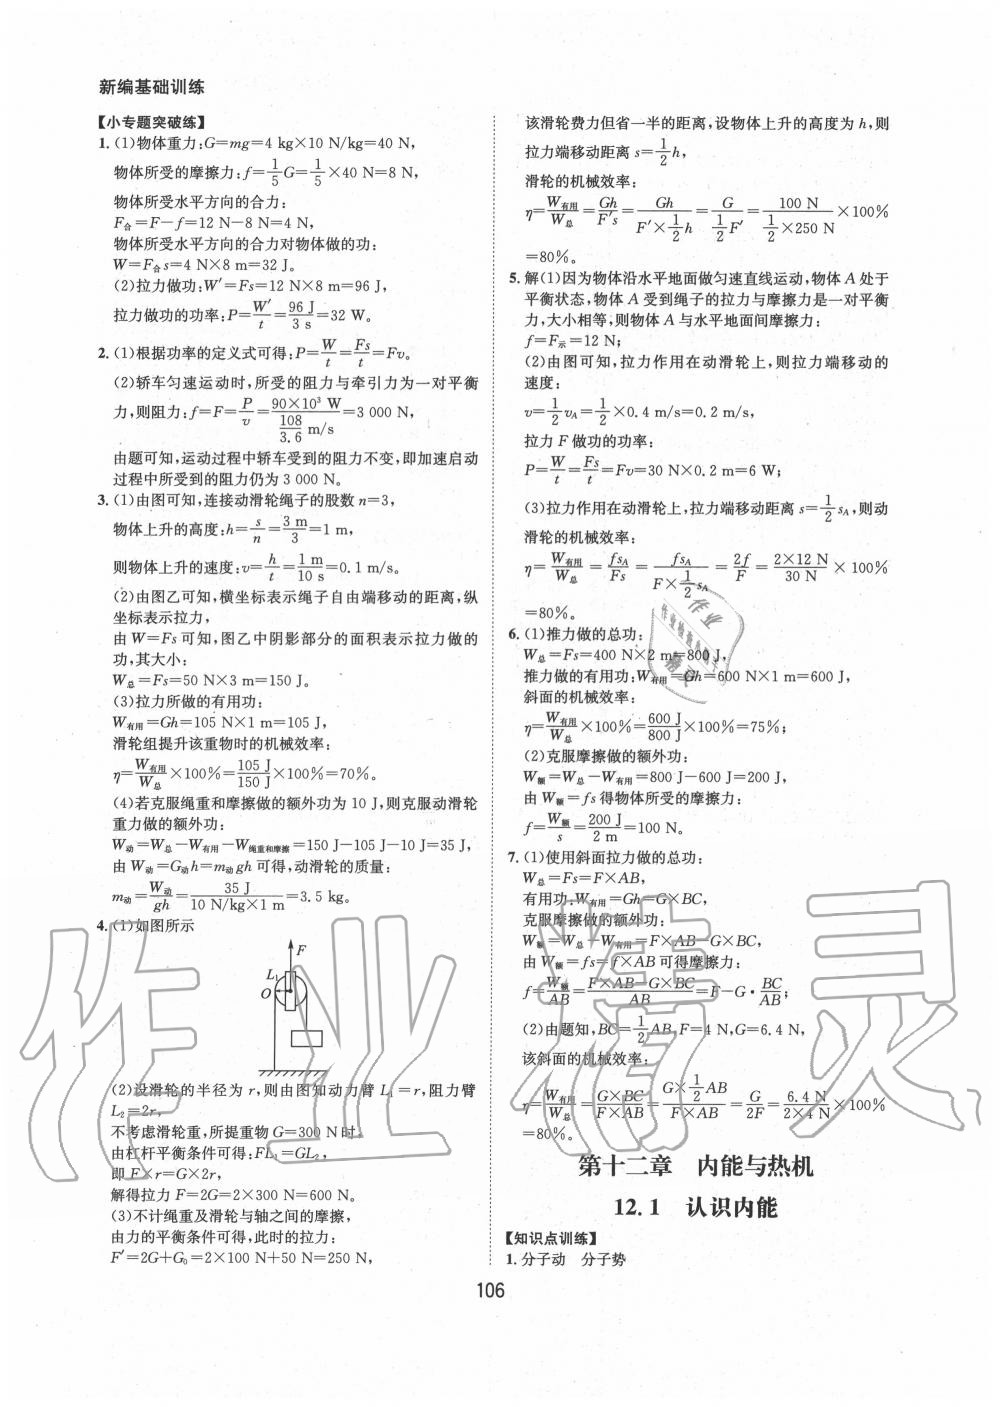 新编基础训练
【小专题突破练】
1. (1)物体重力:G=mg=4 kg×10 N/kg=40 N,
物体所受的摩擦力:f=1/5G=1/5×40 N=8 N,
物体所受水平方向的合力:
F合=F-f=12 N-8 N=4 N,
物体所受水平方向的合力对物体做的功:
W=F合s=4 N×8 m=32 J。
(2)拉力做功:W′=Fs=12 N×8 m=96 J,
拉力做功的功率:P=W′/t=96 J/3 s=32 W。
2. (1)根据功率的定义式可得:P=W/t=Fs/t=Fv。
(2)轿车匀速运动时,所受的阻力与牵引力为一对平衡
力,则阻力:f=F=P/v=90×10³ W/(108/3.6 m/s)=3 000 N,
由题可知,运动过程中轿车受到的阻力不变,即加速启动
过程中所受到的阻力仍为 3 000 N。
3. (1)由图可知,连接动滑轮绳子的股数 n=3,
物体上升的高度:h=s/n=3 m/3=1 m,
则物体上升的速度:v=h/t=1 m/10 s=0.1 m/s。
(2)由图乙可知,横坐标表示绳子自由端移动的距离,纵
坐标表示拉力,
由 W=Fs 可知,图乙中阴影部分的面积表示拉力做的
功,其大小:
W总=Fs=50 N×3 m=150 J。
(3)拉力所做的有用功:
W有用=Gh=105 N×1 m=105 J,
滑轮组提升该重物时的机械效率:
η=W有用/W总×100%=105 J/150 J×100%=70%。
(4)若克服绳重和摩擦做的额外功为 10 J,则克服动滑轮
重力做的额外功:
W动=W总-W有用-W绳重和摩擦=150 J-105 J-10 J=35 J,
由 W动=G动h=m动gh 可得,动滑轮的质量:
m动=W动/gh=35 J/(10 N/kg×1 m)=3.5 kg。
4. (1)如图所示
F
L₁
O
(2)设滑轮的半径为 r,则由图知动力臂 L₁=r,阻力臂
L₂=2r,
不考虑滑轮重,所提重物 G=300 N时,
由杠杆平衡条件可得:FL₁=GL₂,
即 F×r=G×2r,
解得拉力 F=2G=2×300 N=600 N,
(3)不计绳重及滑轮与轴之间的摩擦,
由力的平衡条件可得,此时的拉力:
F′=2G+G₀=2×100 N+50 N=250 N,
该滑轮费力但省一半的距离,设物体上升的高度为 h,则
拉力端移动距离 s=1/2h,
滑轮的机械效率:
η=W有用/W总=Gh/F′s=Gh/(F′×1/2h)=G/(1/2F′)=100 N/(1/2×250 N)×100%
=80%。
5. 解(1)因为物体沿水平地面做匀速直线运动,物体 A 处于
平衡状态,物体 A 受到绳子的拉力与摩擦力是一对平衡
力,大小相等,则物体 A 与水平地面间摩擦力:
f=F示=12 N;
(2)由图可知,拉力作用在动滑轮上,则拉力端移动的
速度:
v=1/2vA=1/2×0.4 m/s=0.2 m/s,
拉力 F 做功的功率:
P=W/t=Fs/t=Fv=30 N×0.2 m=6 W;
(3)拉力作用在动滑轮上,拉力端移动距离 s=1/2sA,则动
滑轮的机械效率:
η=W有用/W总=fsA/Fs=fsA/(F×1/2sA)=2f/F=2×12 N/30 N×100%
=80%。
6. (1)推力做的总功:
W总=Fs=400 N×2 m=800 J,
推力做的有用功:W有用=Gh=600 N×1 m=600 J,
斜面的机械效率:
η=W有用/W总×100%=600 J/800 J×100%=75%;
(2)克服摩擦做的额外功:
W额=W总-W有用=800 J-600 J=200 J,
由 W额=fs 得物体所受的摩擦力:
f=W额/s=200 J/2 m=100 N。
7. (1)使用斜面拉力做的总功:
W总=Fs=F×AB,
有用功:W有用=Gh=G×BC,
克服摩擦做的额外功:
W额=W总-W有用=F×AB-G×BC,
由 W额=fs=f×AB 可得摩擦力:
f=W额/AB=(F×AB-G×BC)/AB=F-G·BC/AB;
(2)由题知,BC=1/2AB,F=4 N,G=6.4 N,
该斜面的机械效率:
η=W有用/W总=G×BC/F×AB=(G×1/2AB)/(F×AB)=G/2F=6.4 N/(2×4 N)×100%
=80%。
第十二章 内能与热机
12.1 认识内能
【知识点训练】
1. 分子动 分子势
106
作业精灵